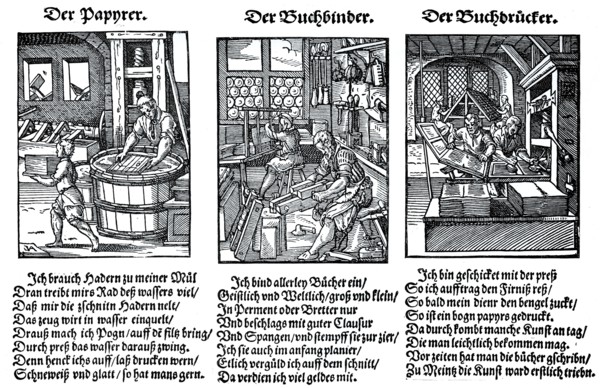 Der Papyrer.
Ich brauch Hadern zu meiner Mül
Dran treibt mirs Rad deß wassers viel/
Daß mir die zschnitn Hadern nelt/
Das zeug wirt in wasser einquelt/
Drauß mach ich Pogn/auff dē filz bring/
Durch preß das wasser darauß zwing.
Denn henck ichs auff/laß drucken wern/
Schneweiß vnd glatt/so hat mans gern.
Der Buchbinder.
Ich bind allerley Bücher ein/
Geistlich vnd Weltlich/groß vnd klein/
In Perment oder Bretter nur
Vnd beschlags mit guter Clausur
Vnd Spangen/vnd stempff sie zur zier/
Ich sie auch im anfang planier/
Etlich vergüld ich auff dem schnitt/
Da verdien ich viel geldes mit.
Der Buchdrücker.
Ich bin geschicket mit der preß
So ich aufftrag den Firniß reß/
So bald mein dienr den bengel zuckt/
So ist ein bogn papyrs gedruckt.
Da durch kombt manche Kunst an tag/
Die man leichtlich bekommen mag.
Vor zeiten hat man die bücher gschribn/
Zu Meintz die Kunst ward erstlich triebn.